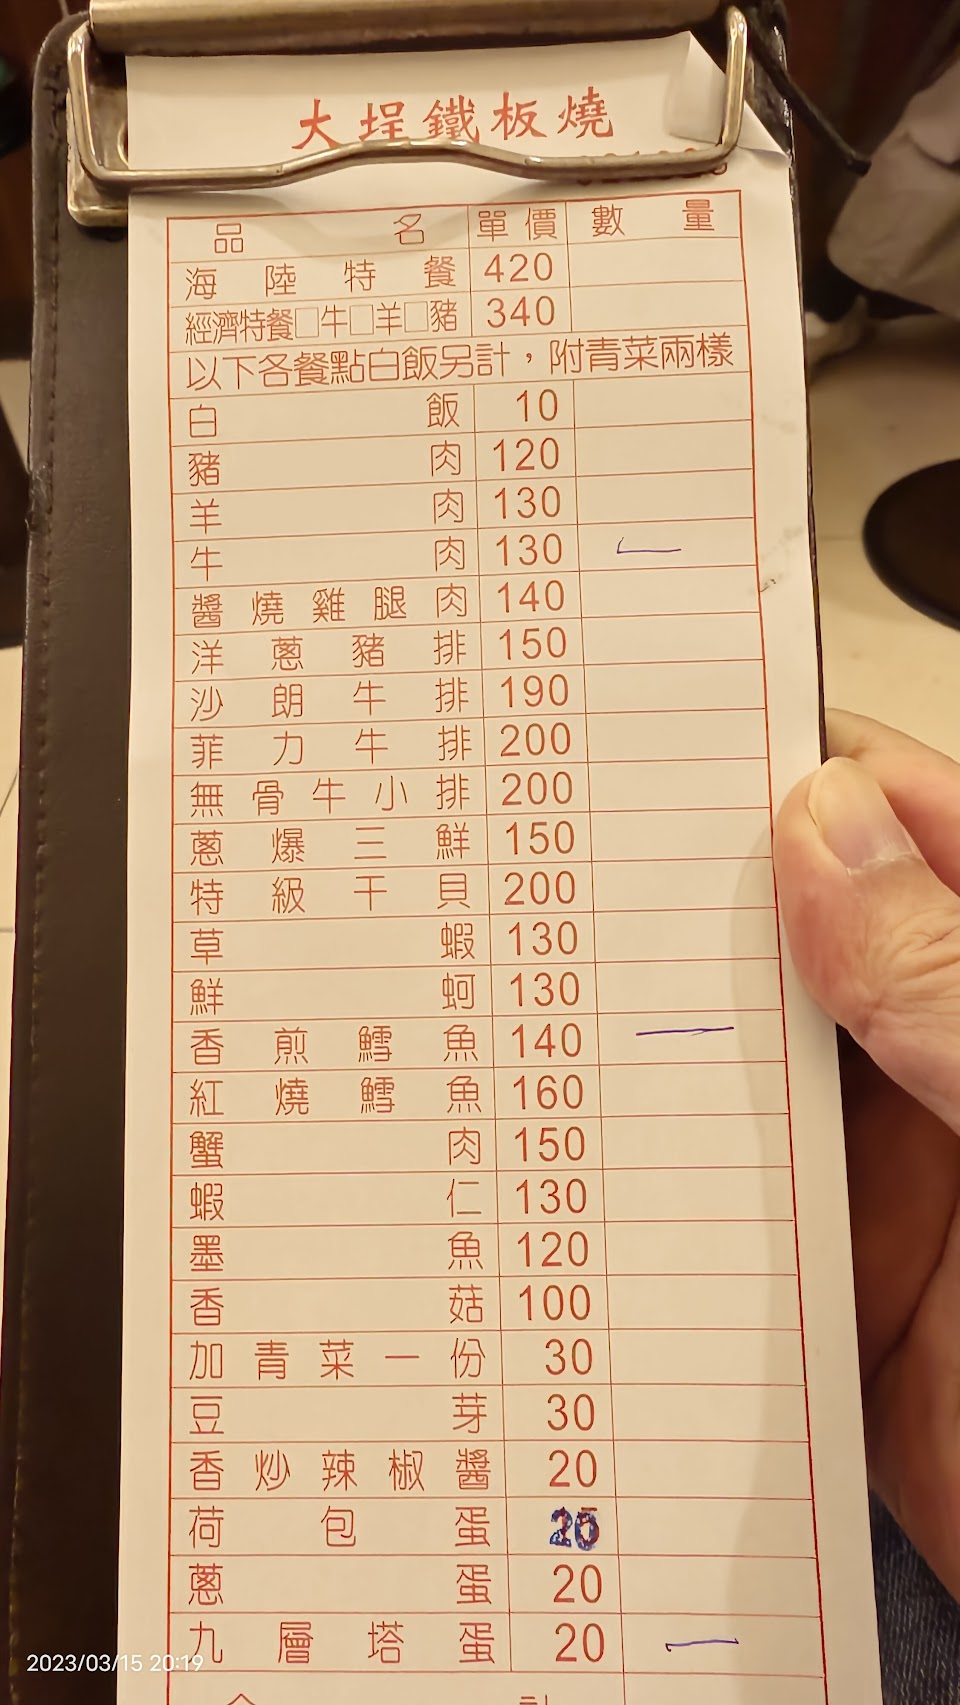 大埕鐵板燒
品名 單價 數量
海陸特餐 420
經濟特餐□牛□羊□豬 340
以下各餐點白飯另計，附青菜兩樣
白飯 10
豬肉 120
羊肉 130
牛肉 130 一
醬燒雞腿肉 140
洋蔥豬排 150
沙朗牛排 190
菲力牛排 200
無骨牛小排 200
蔥爆三鮮 150
特級干貝 200
草蝦 130
鮮蚵 130
香煎鱈魚 140 一
紅燒鱈魚 160
蟹肉 150
蝦仁 130
墨魚 120
香菇 100
加青菜一份 30
豆芽 30
香炒辣椒醬 20
荷包蛋
蔥蛋 20
九層塔蛋 20 一
2023/03/15 20:19